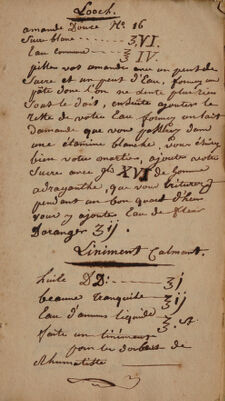 Looch.
amande Douce N.º 16
Sucre blanc ʒ VI.
Eau commune ʒ IV
pillez vos amande avec un peut de
Sucre et un peut d'Eau, formez en
pâte dont L'on ne sente plus rien
sous le doit, ensuite ajouter le
reste de votre Eau formez un lait
damande que vous passerez dans
une étamine blanche, vous
bien votre mortier, ajouter votre
Sucre avec XVI de Gomme
adragante, que vous triturerez
pendant un bon quart d'heur
vous y ajoute Eau de fleur
Doranger ʒ ij
Liniment Calmant.
huile ʒ j
beaume tranquile ʒ ij
Eau d'anus liquide ʒ
faite un liniment
pour les dorleurs de
Rhumatisse